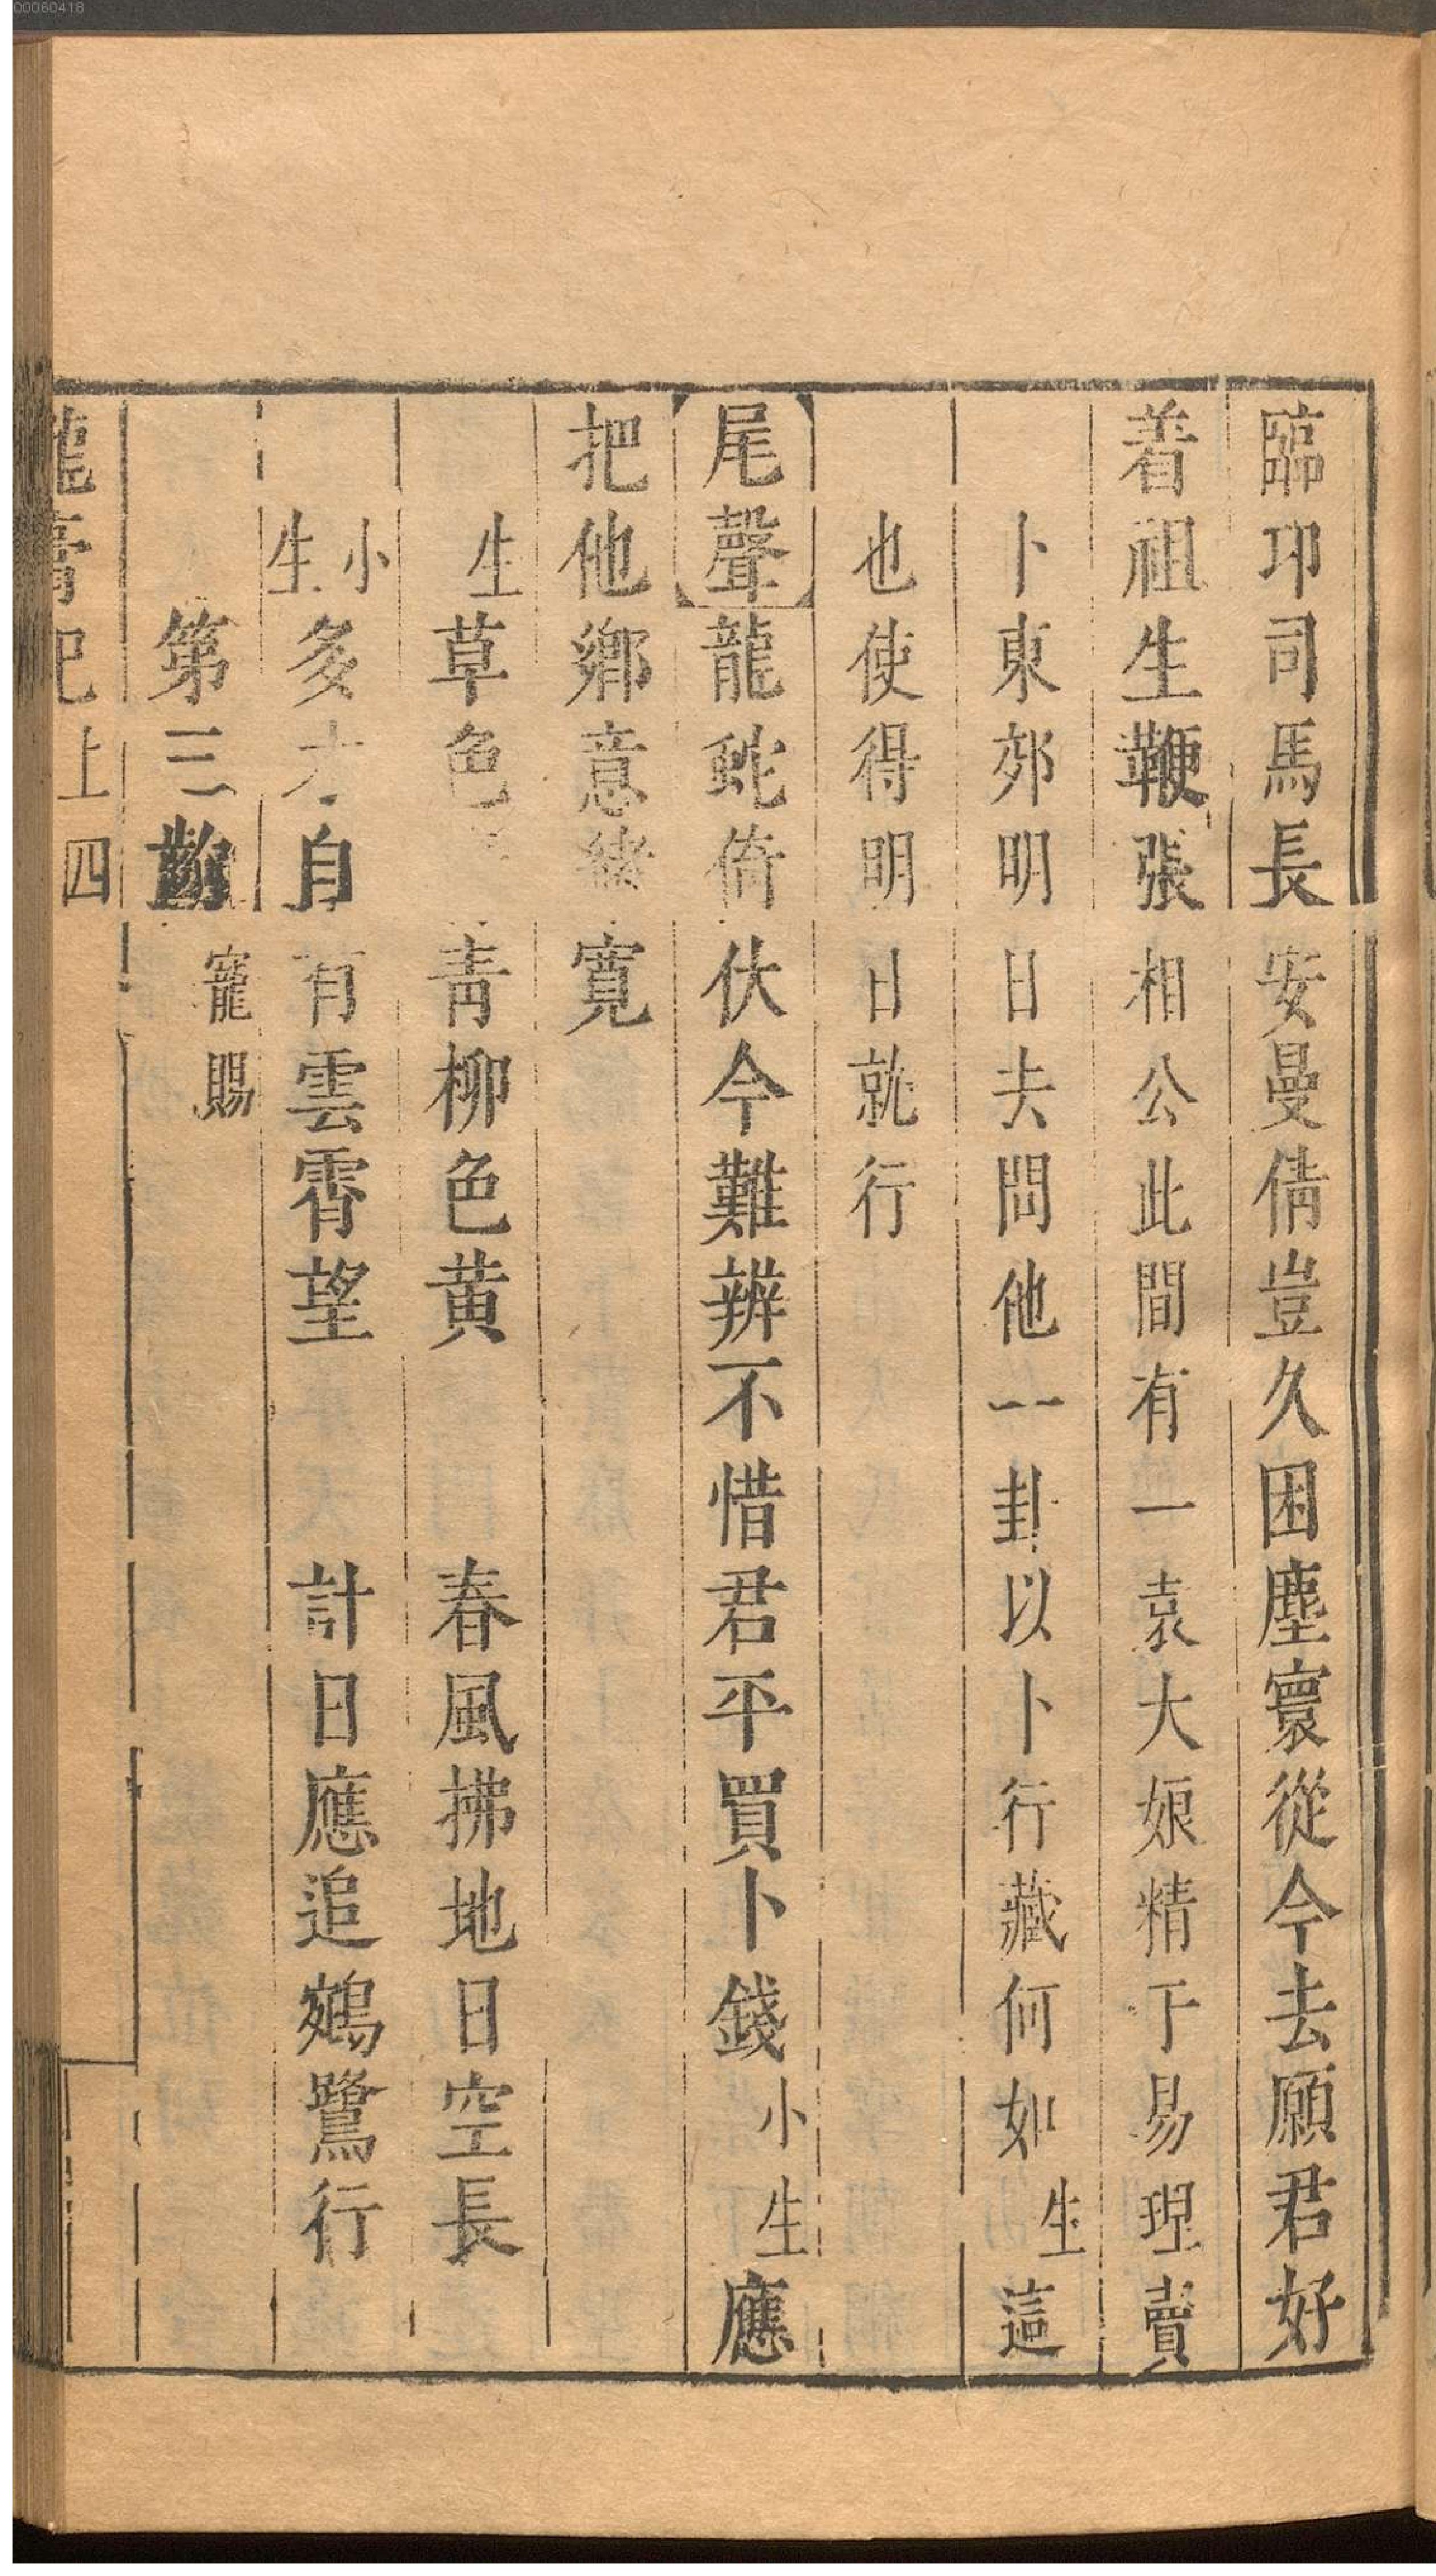 00060418
臨邛司馬長安曼倩豈久困塵寰從今去願君好
着祖生鞭張相公此間有一袁大娘精于易理賣
卜東郊明日去問他一卦以卜行藏何如生這
也使得明日就行
尾聲龍虵倚伏今難辨不惜君平買卜錢小生應
把他鄉意緒寬
生草色青柳色黄　春風拂地日空長
小生多才自有雲霄望　計日應追鵷鷺行
第三齣寵賜
龍膏記上四